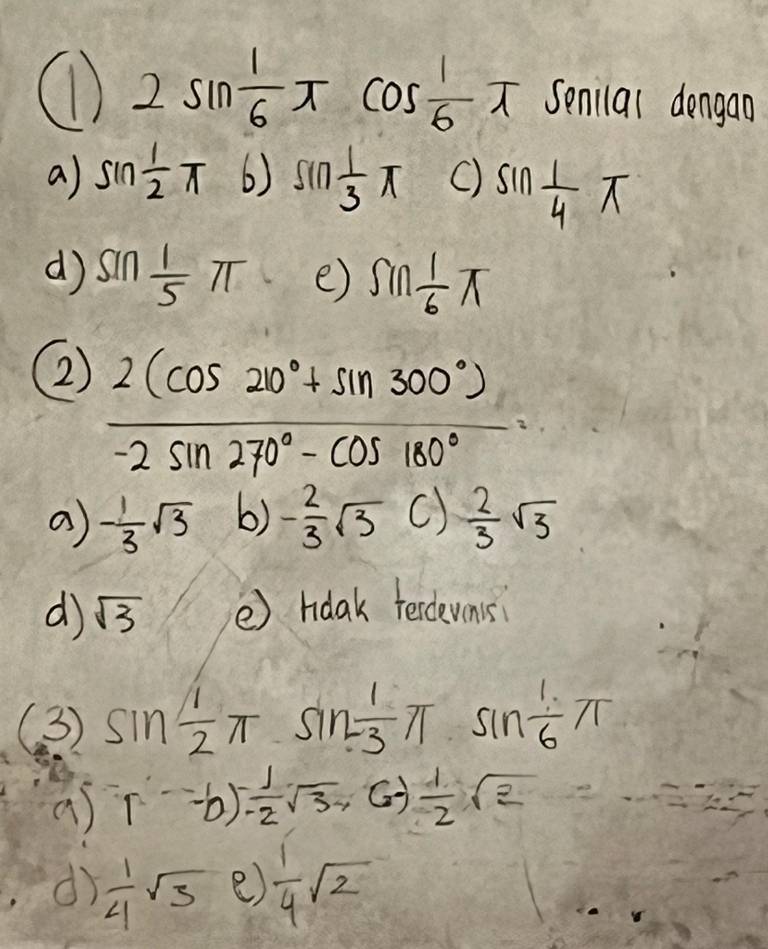 (1) 2 sin 1/6 π cos 1/6 π senilai dengan
a) sin 1/2 π b) sin 1/3 π c) sin 1/4 π
d) sin 1/5 π e) sin 1/6 π
(2) 2(cos 210° + sin 300°)
-2 sin 270° - cos 180° =
a) -1/3 √3 b) -2/3 √3 c) 2/3 √3
d) √3 e) tidak terdevinisi
(3) sin 1/2 π sin 1/3 π sin 1/6 π
a) 1 b) 1/2 √3 c) 1/2 √2
d) 1/4 √3 e) 1/4 √2